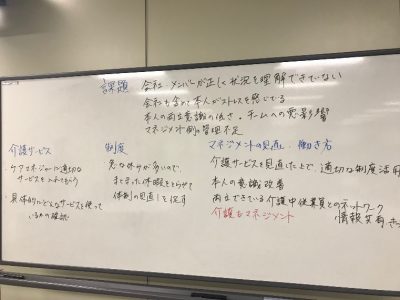 課題 会社、メンバーが正しく状況を理解できていない
会社も含めて本人がストレスを感じてる
本人の両立意識の低さ、チームへの悪影響
マネジメント側の管理不足
介護サービス
・ケアマネジャーに適切な
サービスを
・具体的にどんなサービスを使って
いるかの確認
制度
急な休みが多いので、
まとまった休暇をとらせて
体制の見直しを促す
マネジメントの見直し、働き方
介護サービスを見直した上で、適切な制度活用
本人の意識改善
両立できている介護中従業員とのネットワーク
情報共有
介護もマネジメント